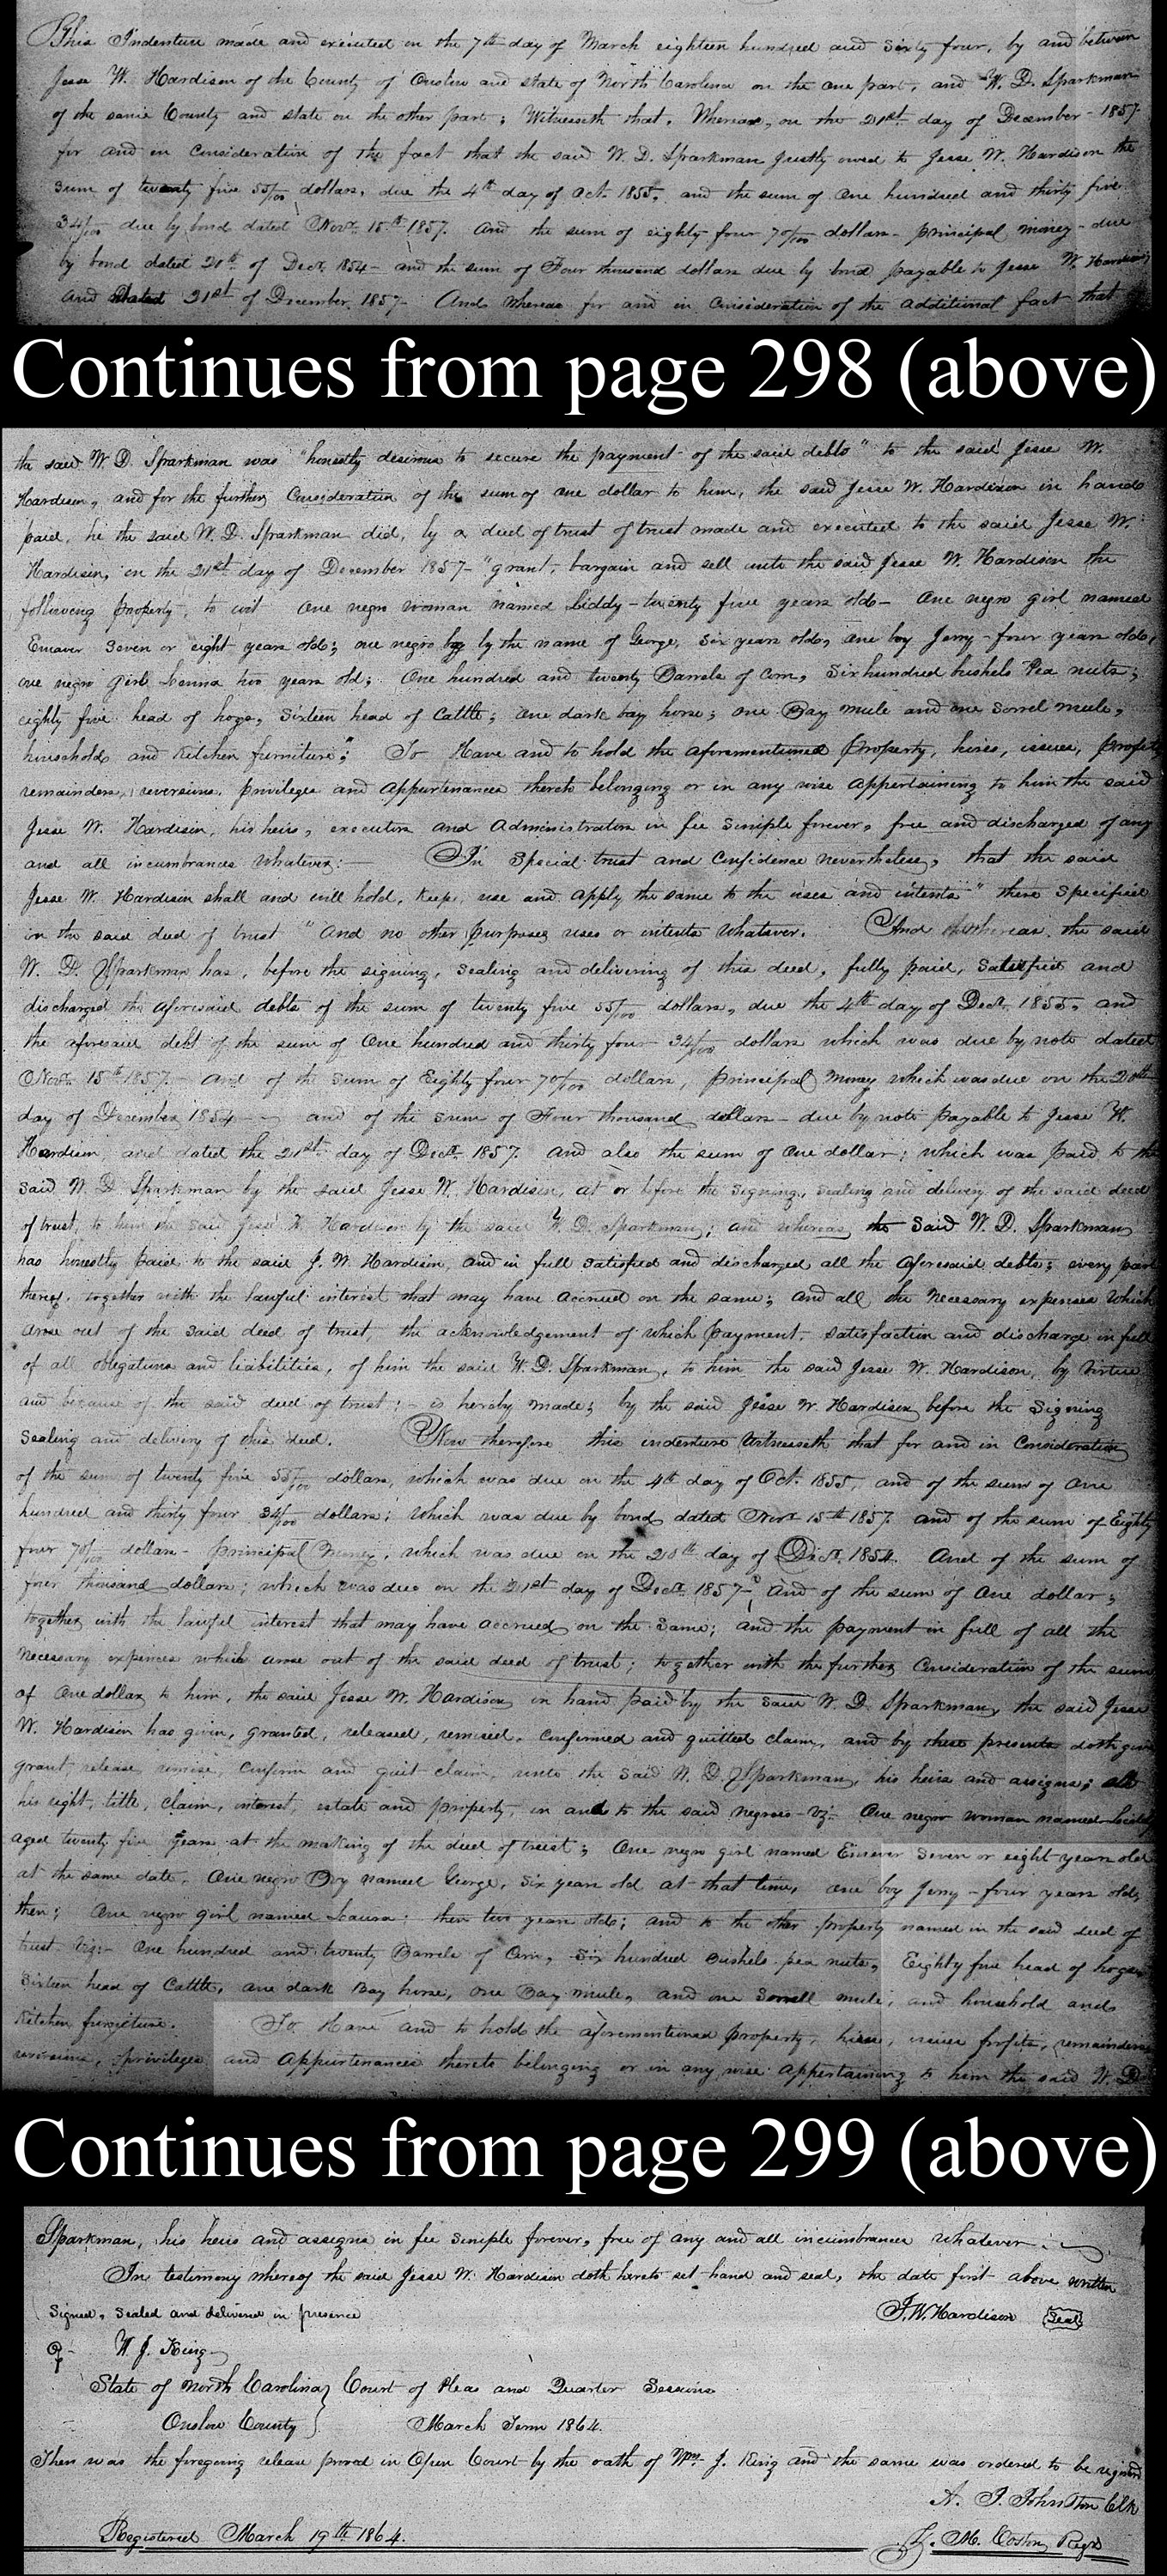 This Indenture made and executed on the 7th day of March eighteen hundred and Sixty four, by and between
Jesse W. Hardison of the County of Onslow and state of North Carolina on the one part, and W. D. Sparkman
of the same County and state on the other part; Witnesseth that, Whereas, on the 21st day of December - 1857
for and in Consideration of the fact that the said W. D. Sparkman justly owed to Jesse W. Hardison the
sum of twenty five 55/100 dollars, due the 4th day of Oct. 1855, and the sum of One hundred and thirty five
34/100 due by bond dated Novr. 15th 1857. And the sum of eighty four 70/100 dollars - principal money - due
by bond dated 21st of Decr. 1854 - and the sum of Four thousand dollars due by bond payable to Jesse W. Hardison
and dated 21st of December 1857 - And whereas for and in Consideration of the additional fact that
Continues from page 298 (above)
the said W. D. Sparkman was "honestly desirous to secure the payment of the said debts" to the said Jesse W.
Hardison, and for the further Consideration of the sum of one dollar to him, the said Jesse W. Hardison in hand
paid, he the said W. D. Sparkman did, by a deed of trust of trust made and executed to the said Jesse W.
Hardison, on the 21st day of December 1857 - "grant, bargain and sell unto the said Jesse W. Hardison the
following property, to wit One negro woman named Liddy - twenty five years old - One negro girl named
Emaver seven or eight years old; one negro boy by the name of George, six years old, one boy Jerry - four years old,
one negro girl Launa two years old; One hundred and twenty Barrels of Corn, Six hundred bushels Pea nuts;
eighty five head of hogs, Sixteen head of Cattle; one dark bay horse; one Bay mule and one Sorrel mule,
household and kitchen furniture;" To Have and to hold the aforementioned property, hires, issues, profits
remainders, reversions, privileges and appurtenances thereto belonging or in any wise appertaining to him the said
Jesse W. Hardison, his heirs, executors and Administrators in fee simple forever, free and discharged of any
and all incumbrances whatever: - In Special trust and Confidence nevertheless, that the said
Jesse W. Hardison shall and will hold, keep, use and apply the same to the uses and intents" there specified
in the said deed of trust "and no other purposes uses or intents whatever. And whereas, the said
W. D. Sparkman has, before the signing, sealing and delivering of this deed, fully paid, satisfied and
discharged the aforesaid debts of the sum of twenty five 55/100 dollars, due the 4th day of Oct. 1855, and
the aforesaid debt of the sum of One hundred and thirty four 34/100 dollars which was due by note dated
Novr. 15th 1857. And of the sum of Eighty four 70/100 dollars, principal money which was due on the 20th
day of December 1854 - - and of the sum of Four thousand dollars - due by note payable to Jesse W.
Hardison, and dated the 21st day of Decr. 1857. and also the sum of One dollar; which was paid to the
said W. D. Sparkman by the said Jesse W. Hardison, at or before the signing, sealing and delivery of the said deed
of trust, to him the said Jesse W. Hardison by the said W. D. Sparkman; and whereas, the said W. D. Sparkman
has honestly paid to the said J. W. Hardison, and in full satisfied and discharged all the aforesaid debts; every part
thereof, together with the lawful interest that may have accrued on the same; and all the necessary expenses which
arose out of the said deed of trust, the acknowledgement of which payment, satisfaction and discharge in full
of all obligations and liabilities, of him the said W. D. Sparkman, to him the said Jesse W. Hardison, by virtue
and because of the said deed of trust; - is hereby made; by the said Jesse W. Hardison before the signing
sealing and delivery of this deed. Now therefore this indenture Witnesseth that for and in Consideration
of the sum of twenty five 55/100 dollars, which was due on the 4th day of Oct. 1855, and of the sum of One
hundred and thirty four 34/100 dollars; which was due by bond dated Novr. 15th 1857. and of the sum of Eighty
four 70/100 dollars - principal money, which was due on the 20th day of Decr. 1854. And of the sum of
four thousand dollars; which was due on the 21st day of Decr. 1857 - and of the sum of one dollar;
together with the lawful interest that may have accrued on the same; and the payment in full of all the
necessary expences which arose out of the said deed of trust; together with the further Consideration of the sum
of One dollar to him, the said Jesse W. Hardison in hand paid by the said W. D. Sparkman, the said Jesse
W. Hardison has given, granted, released, remised, confirmed and quitted claim, and by these presents doth give
grant, release, remise, confirm and quit claim, unto the said W. D. Sparkman, his heirs and assigns; all
his right, title, claim, interest, estate and property, in and to the said negroes - viz. One negro woman named Liddy
aged twenty five years at the making of the deed of trust; One negro girl named Emever seven or eight years old
at the same date, One negro Boy named George, six years old at that time, one boy Jerry - four years old,
then; One negro girl named Launa: then two years old; and to the other property named in the said deed of
trust. Viz:- One hundred and twenty Barrels of Corn, six hundred bushels pea nuts, Eighty five head of hogs,
Sixteen head of Cattle, one dark Bay horse, One Bay mule, and one Sorrell mule, and household and
Kitchen furniture. To Have and to hold the aforementioned property, hires, issues profits, remainders
reversions, privileges and appurtenances thereto belonging or in any wise appertaining to him the said W. D
Continues from page 299 (above)
Sparkman, his heirs and assigns in fee simple forever, free of any and all incumbrances whatever.
In testimony whereof the said Jesse W. Hardison doth hereto set hand and seal, the date first above written
Signed, Sealed and delivered in presence J. W. Hardison Seal
of W. J. King
State of North Carolina } Court of Pleas and Quarter Sessions
Onslow County } March Term 1864.
Then was the foregoing release proved in Open Court by the oath of Wm. J. King and the same was ordered to be registered
A. J. Johnston Clk
Registered March 19th 1864. M. Coston Regr